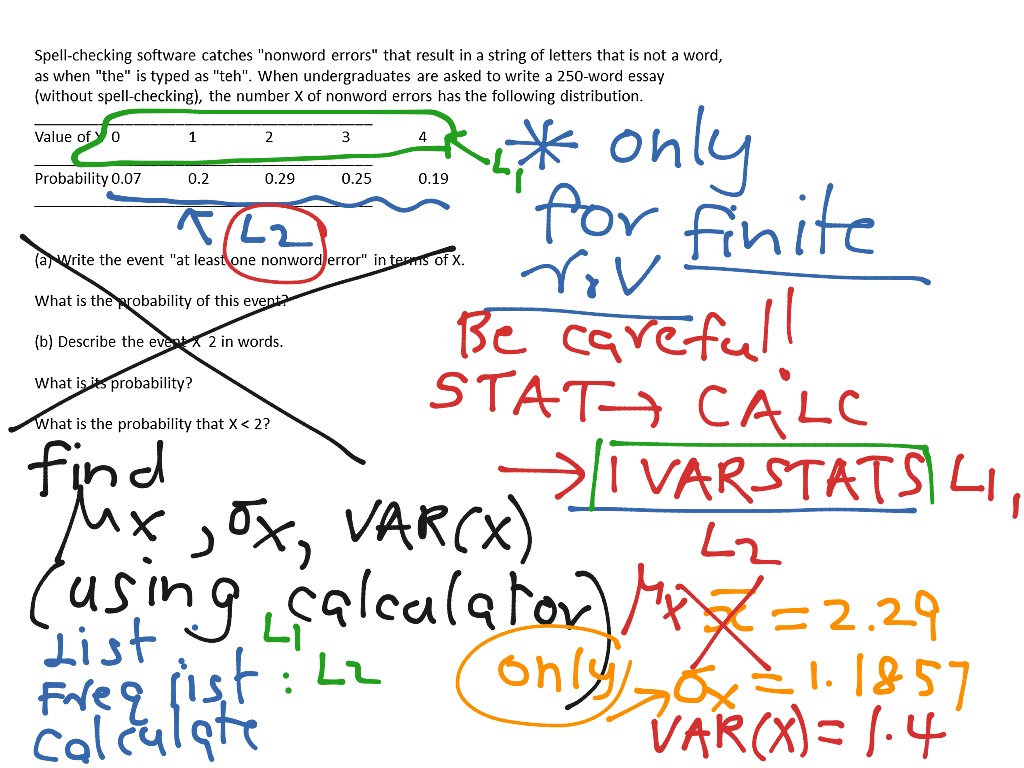 Spell-checking software catches "nonword errors" that result in a string of letters that is not a word,
as when "the" is typed as "teh". When undergraduates are asked to write a 250-word essay
(without spell-checking), the number X of nonword errors has the following distribution.
Value of X 0 1 2 3 4
Probability 0.07 0.2 0.29 0.25 0.19
L1
L2
* only
for finite
r.V
(a) Write the event "at least one nonword error" in terms of X.
What is the probability of this event?
(b) Describe the event X 2 in words.
What is its probability?
What is the probability that X < 2?
Be careful!
STAT → CALC
→ 1 VARSTATS L1,
L2
find
μx, σx, VAR(X)
(using calculator)
List : L1
Freq list : L2
Calculate
μx x̄ = 2.29
only → σx = 1.1857
VAR(X) = 1.4